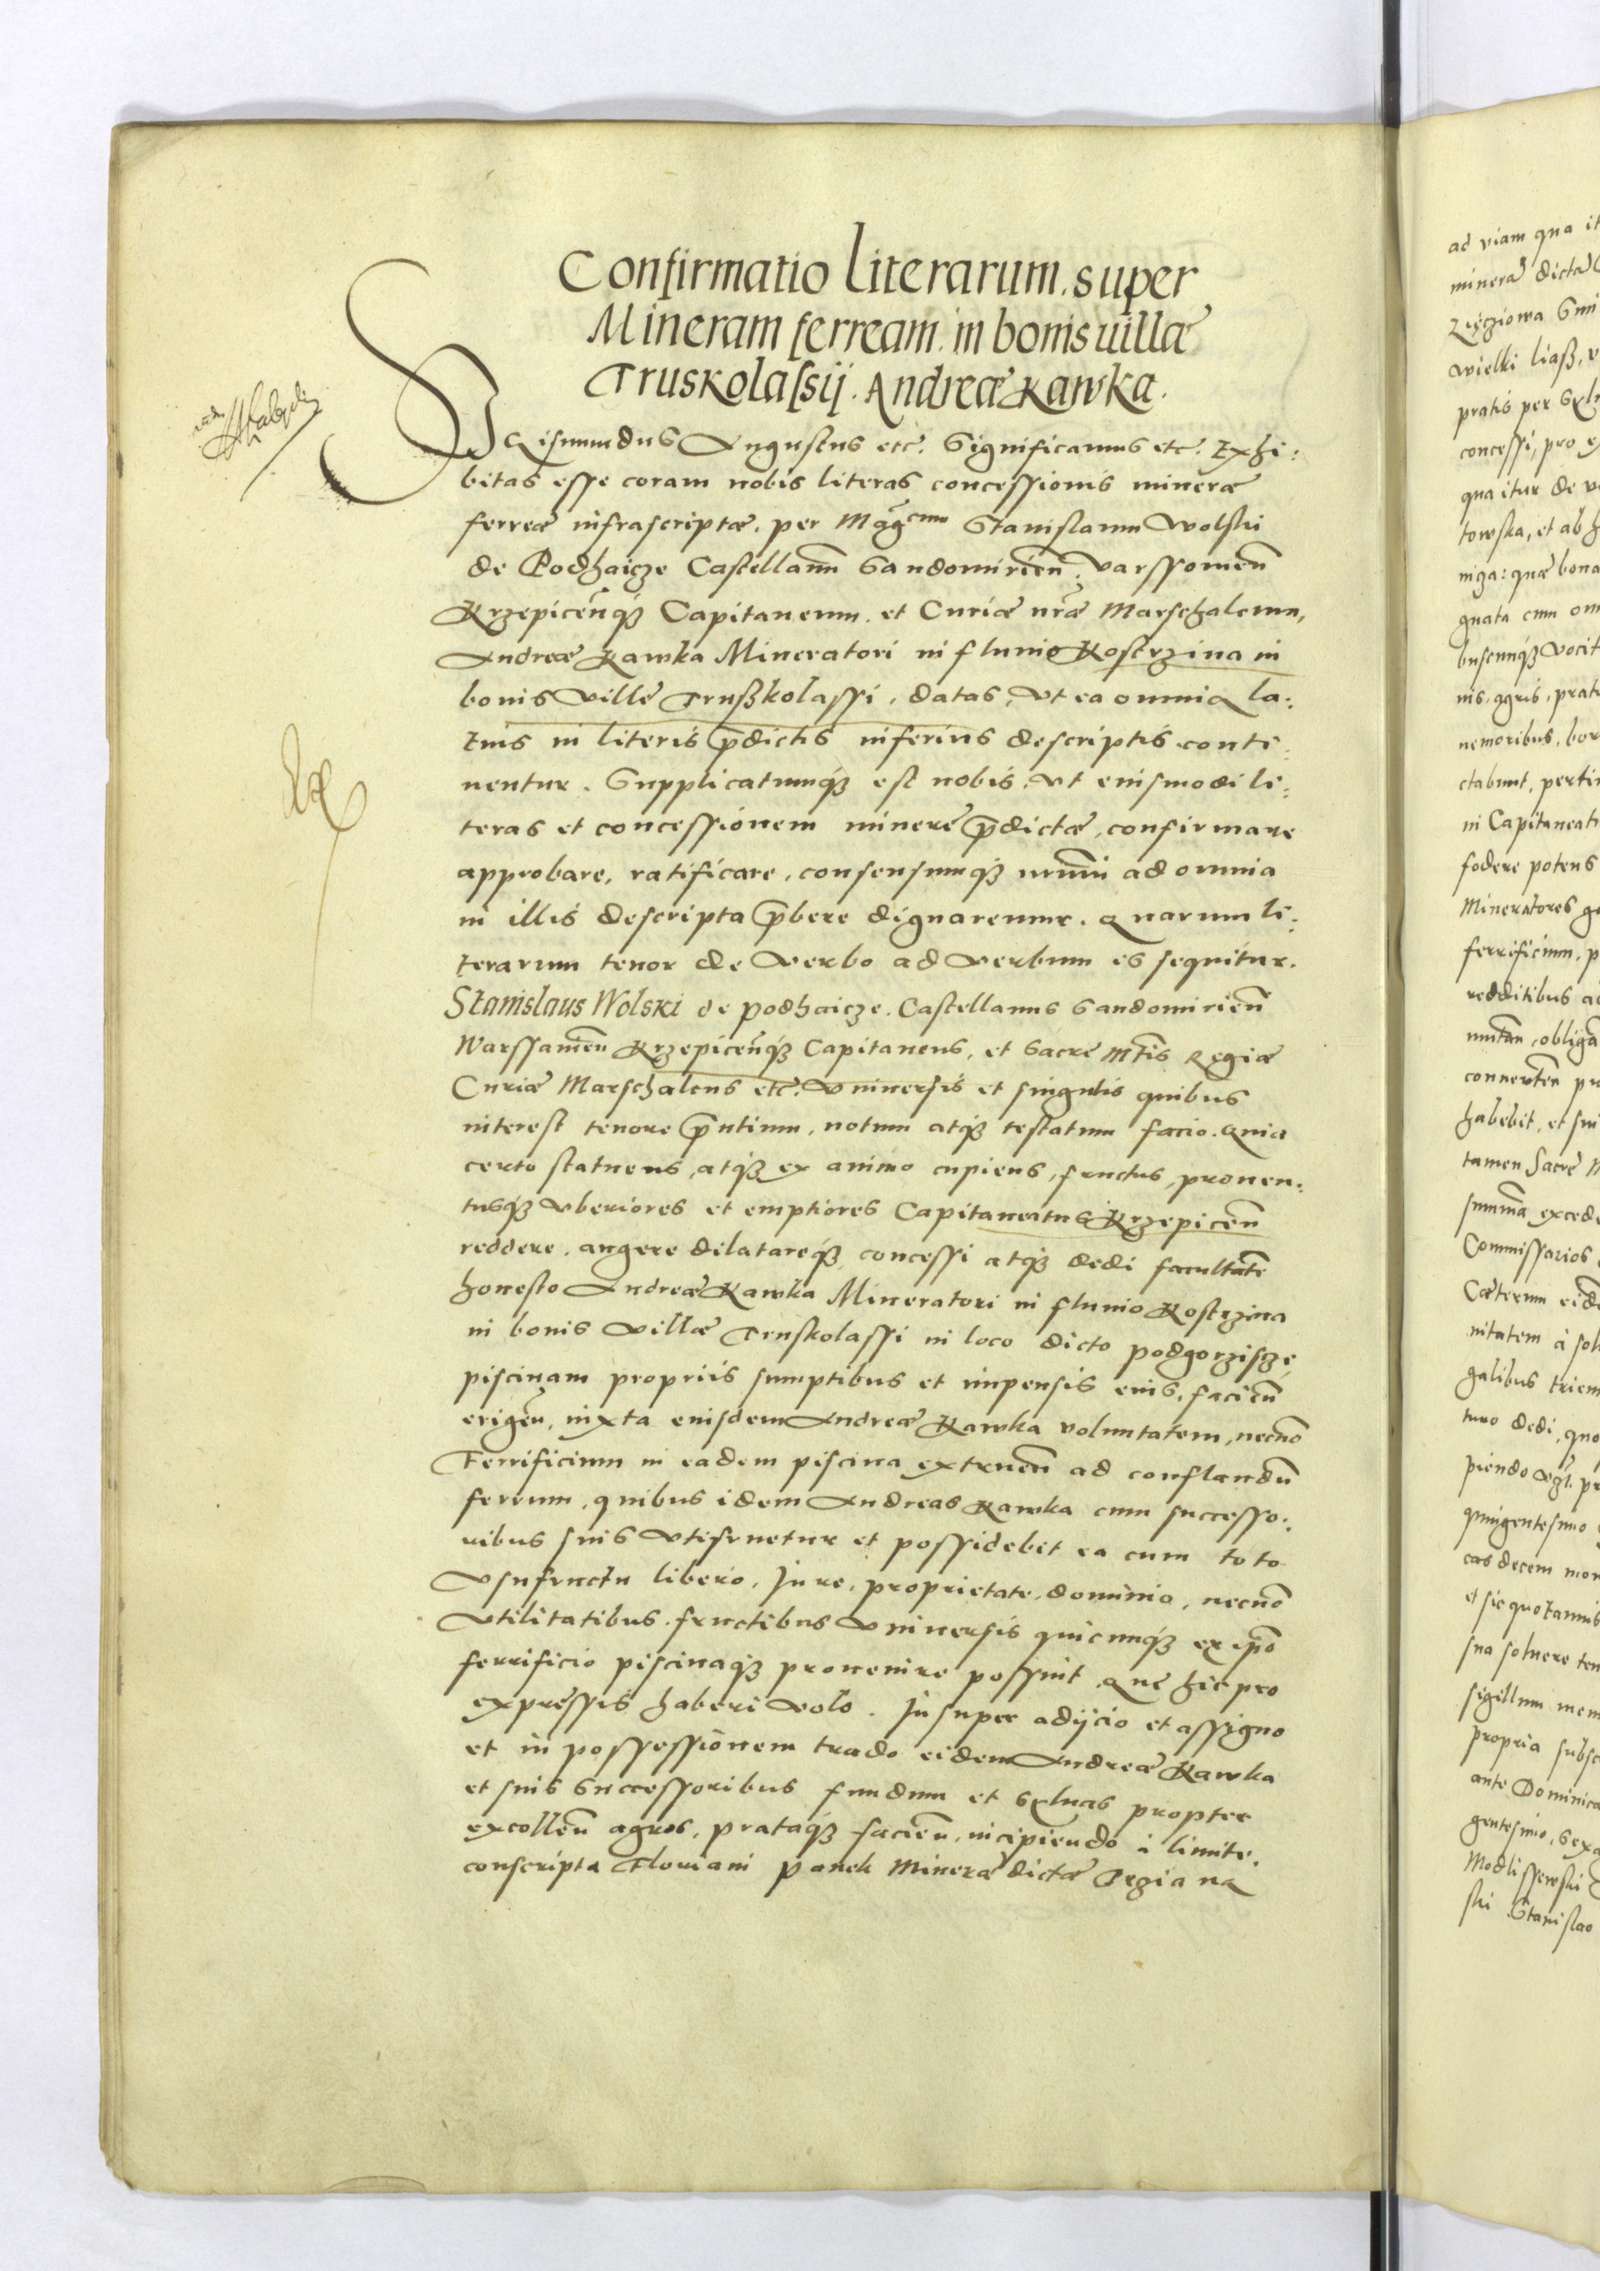 Confirmatio Literarum super
Mineram ferream in bonis villæ
Truskolassij. Andreæ Kawka.
Sigismundus Augustus etc. Significamus etc. Exhi:
bitas esse coram nobis literas concessionis mineræ
ferreæ infrascriptæ, per Mgcum Stanislaum Wolski
de Podhaicze Castellanū Sandomirien̄. Varssouien̄
Krzepicen̄qȝ Capitaneum, et Curiæ nr̄æ Marschalcum,
Andreæ Kawka Mineratori in fluuio Kostrzina in
bonis Ville Trußkolassi, datas, vt ea omnia la:
tius in literis p̄dictis inferius descriptis conti:
nentur. Supplicatumqȝ est nobis, vt eiusmodi li:
teras et concessionem minere p̄dictæ, confirmare
approbare, ratificare, consensumqȝ nrūm ad omnia
in illis descripta p̄bere dignaremur. Quarum li:
terarum tenor de verbo ad verbum es sequitur.
Stanislaus Wolski de Podhaicze. Castellanus Sandomirien̄
Warssauien̄ Krzepicen̄qȝ Capitaneus, et Sacre Mt̄is Regiæ
Curiæ Marschalcus etc. Vniuersis et singulis quibus
interest tenore p̄ntium, notum atqȝ testatum facio. Quia
certo statuens, atqȝ ex animo cupiens, fructus, prouen:
tusqȝ vberiores et emptiores Capitaneatus Krzepicen̄
reddere, augere dilatareqȝ, concessi atqȝ dedi facultatē
honesto Andreæ Kawka Mineratori in fluuio Kostrzina
in bonis Villæ Truskolassi in loco dicto Podgorziscze,
piscinam propriis sumptibus et impensis eius, facien̄
erigen̄, iuxta eiusdem Andreæ Kawka voluntatem, necnō
Ferrificium in eadem piscina extruen̄ ad conflandū
ferrum, quibus idem Andreas Kawka cum successo:
ribus suis vtifruetur et possidebit ea cum toto
Vsufructu libero, Iure, proprietate, dominio, necnō
Vtilitatibus fructibus Vniuersis quicunqȝ ex ip̄o
ferrificio piscinaqȝ prouenire possint, que hic pro
expressis haberi volo. Insuper adijcio et assigno
et in possessionem trado eidem Andreæ Kawka
et suis Successoribus fundum et Syluas propter
excollen̄ agros, prataqȝ facien̄, incipiendo à limite
conscripta Floriani Panek Mineræ dictæ
ad viam qua it
minerā dictā
wielki liaß, v
concessi, pro ex
qua itur de
towska, et ab h
niga: quæ bona
gnata cum om
nis, agris, prat
nemoribus, bor
ctabunt, perti
in Capitaneat
fodere potens
Mineratores
ferrificium, p
redditibus a
habebit, et sui
tamen Sacre M
summā excede
Commissarios
Cæterum eid
nitatem à sol
turo dedi, quo
quingentesimo
cas decem mo
et sic quotannis
sua soluere ten
sigillum mem
propria subsc
ante Dominica
gentesimo, Sexa
ski Stanislao